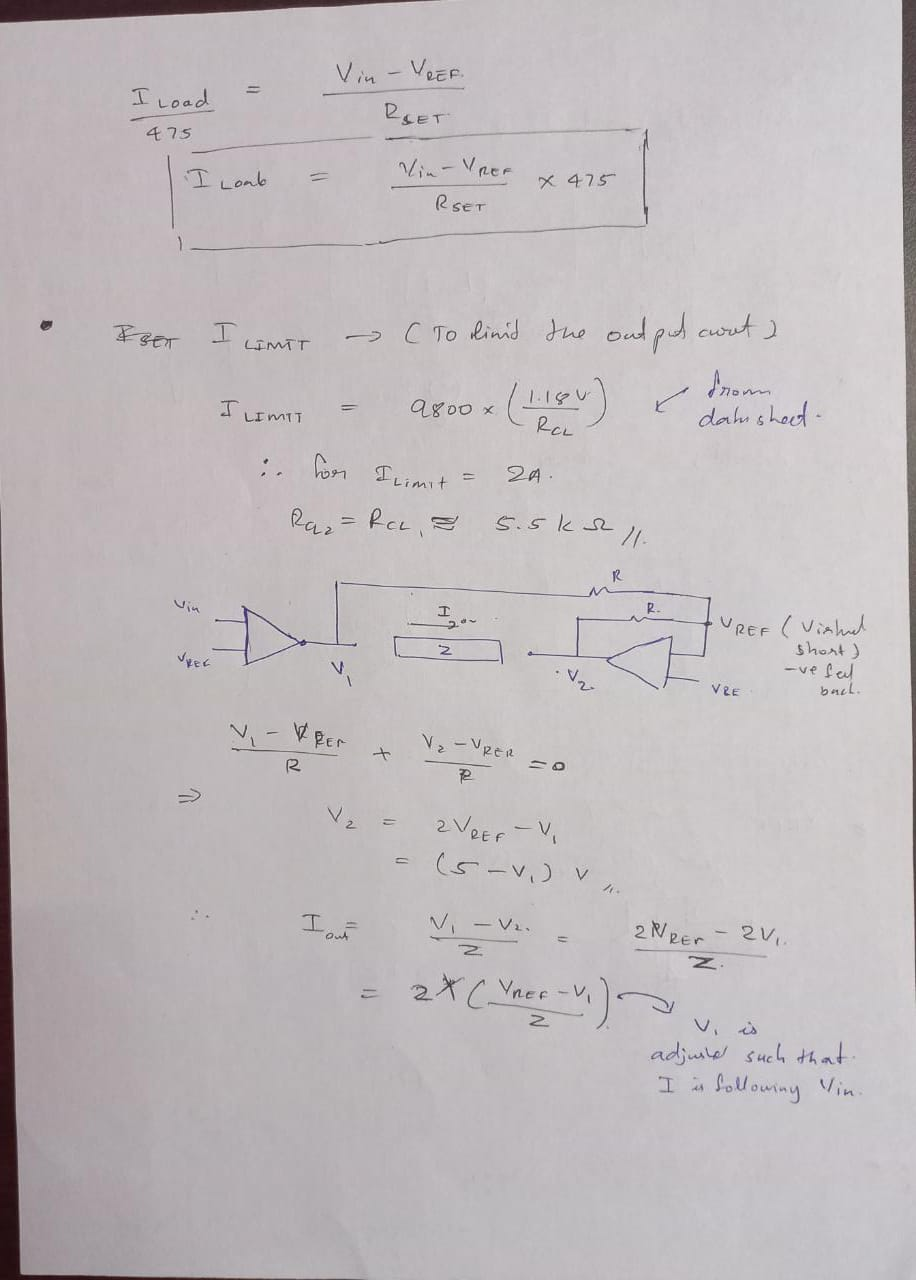 I Load / 475 = (Vin - VREF.) / RSET
I Load = (Vin - VREF) / RSET × 475
I LIMIT → (To limit the output
I LIMIT = 9800 × (1.18V / RCL) ← from
datasheet.
∴ for ILimit = 2A.
= RCL, ≈ 5.5 k Ω //.
R
Vin I R. VREF (Virtual
VREF Z short)
V1 V2 -ve feed
VRE back.
(V1 - VREF) / R + (V2 - VREF) / R = 0
⇒
V2 = 2VREF - V1
= (5 - V1) V //.
∴ Iout = (V1 - V2.) / Z = (2VREF - 2V1.) / Z.
= 2 ((VREF - V1) / Z) → V1 is
adjusted such that.
I is following Vin.